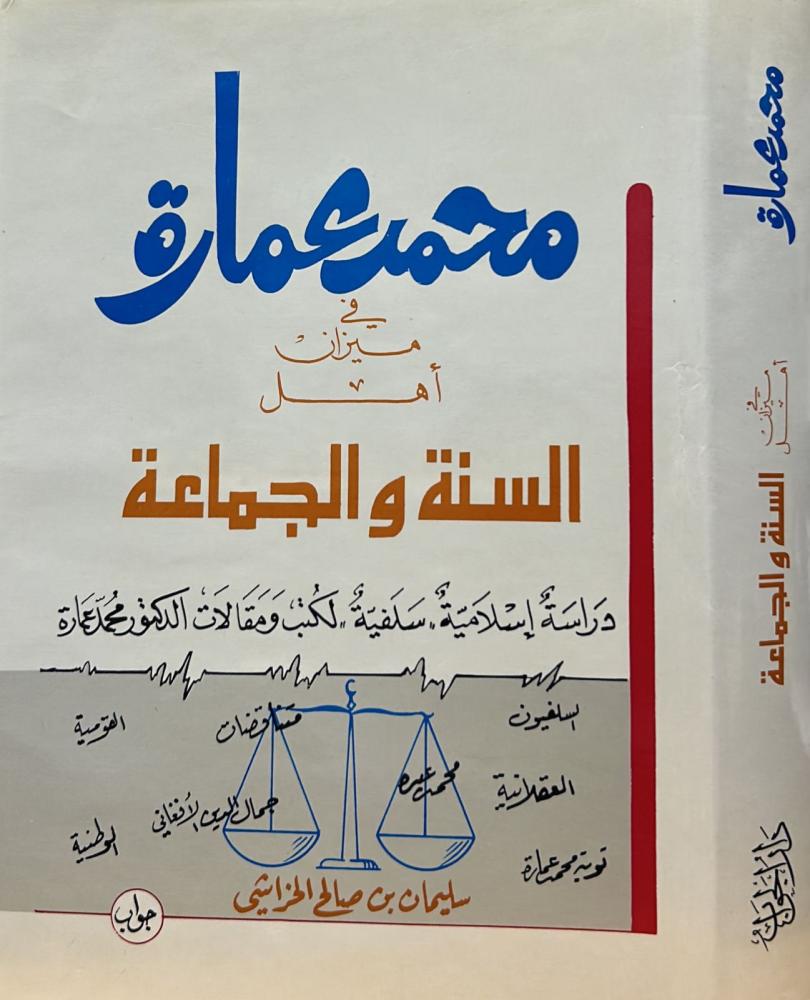 محمد عمارة
في
ميزان
أهل
السنة والجماعة
دراسةٌ إسلاميّةٌ «سلفيّةٌ» لكتب ومقالات الدكتور محمّد عمارة
السلفيون
متناقضات
القومية
العقلانية
محمد عبده
جمال الدين الأفغاني
الوطنية
توبة محمد عمارة
سليمان بن صالح الخراشي
جواب
محمد عمارة
في
ميزان
أهل
السنة والجماعة
دار الجواب